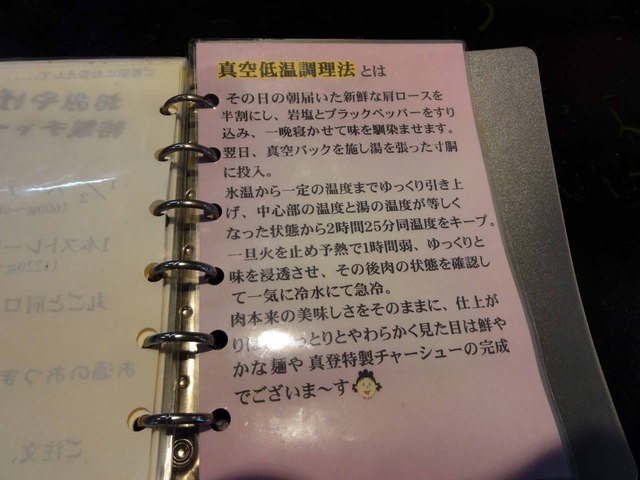 真空低温調理法とは
その日の朝届いた新鮮な肩ロースを
半割にし、岩塩とブラックペッパーをすり
込み、一晩寝かせて味を馴染ませます。
翌日、真空パックを施し湯を張った寸胴
に投入。
氷温から一定の温度までゆっくり引き上
げ、中心部の温度と湯の温度が等しく
なった状態から2時間25分同温度をキープ。
一旦火を止め予熱で1時間弱、ゆっくりと
味を浸透させ、その後肉の状態を確認し
て一気に冷水にて急冷。
肉本来の美味しさをそのままに、仕上が
りは っとりとやわらかく見た目は鮮や
かな麺や 真登特製チャーシューの完成
でございま～す